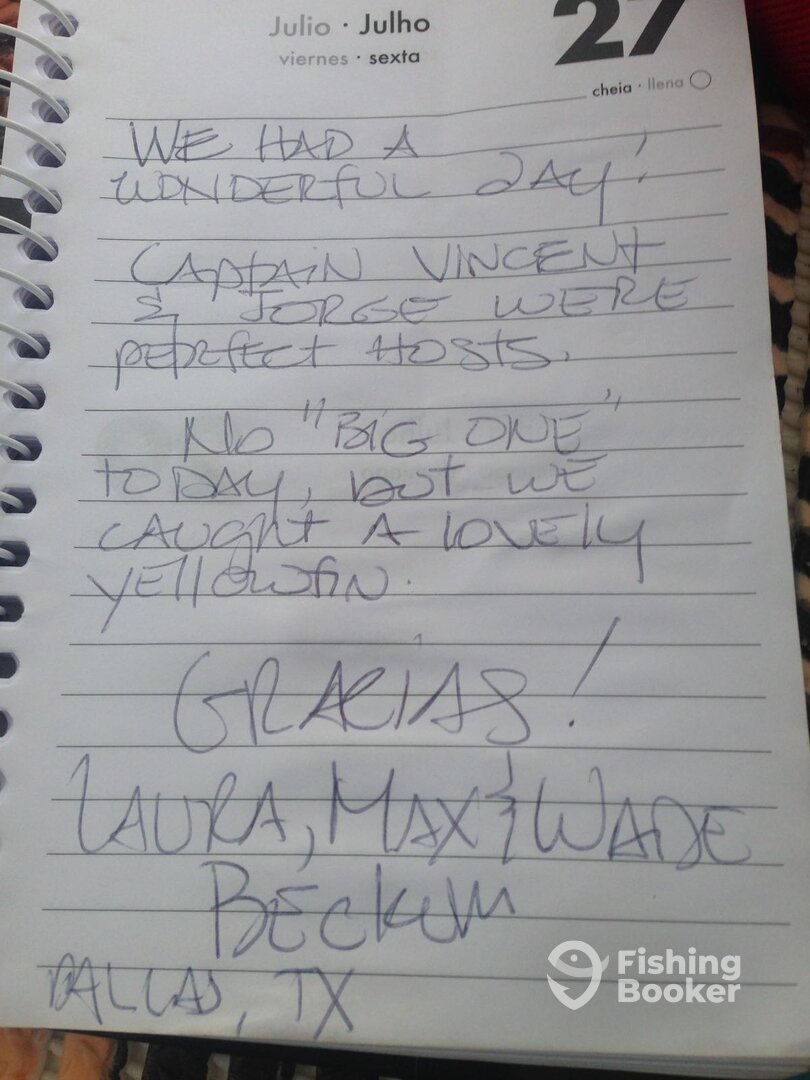 Julio · Julho
27
viernes · sexta
cheia · llena
WE HAD A
WONDERFUL DAY!
CAPTAIN VINCENT
& JORGE WERE
PERFECT HOSTS.
NO "BIG ONE"
TODAY, BUT WE
CAUGHT A LOVELY
YELLOWFIN.
GRACIAS!
LAURA, MAX & WADE
BECKUM
DALLAS, TX
Fishing
Booker